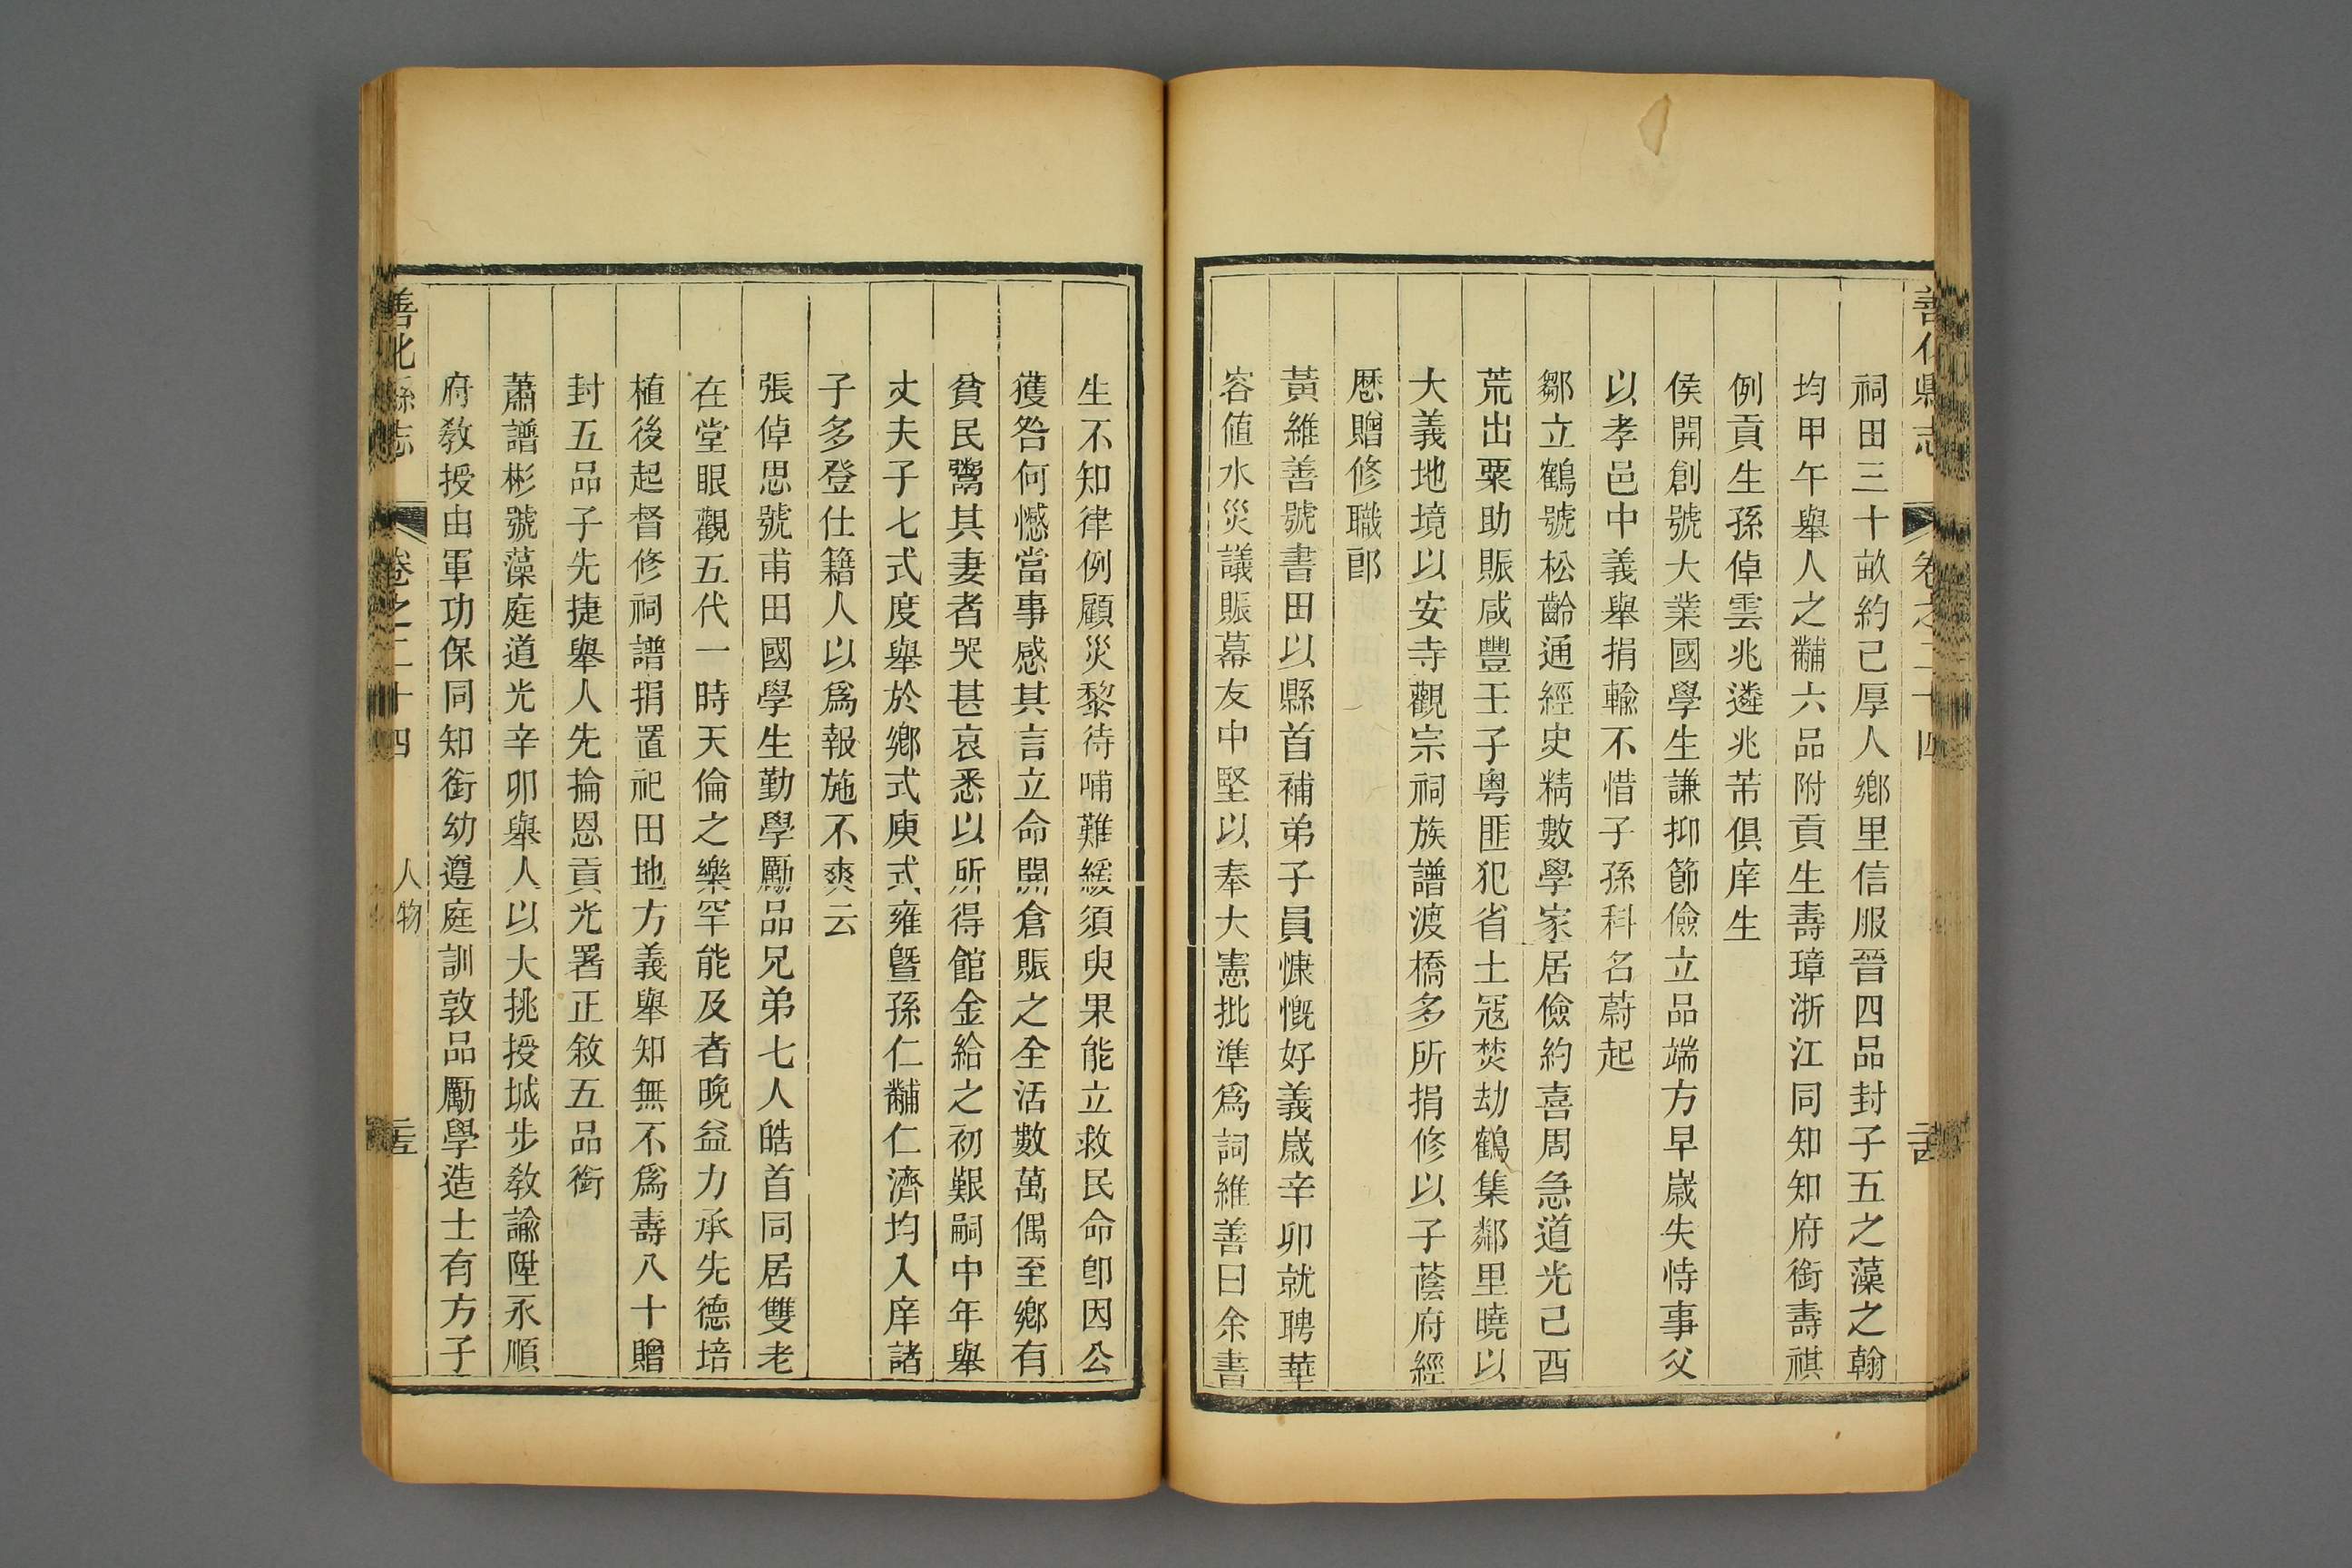 善化縣志 卷之二十四
祠田三十畝約己厚人鄉里信服晉四品封子五之藻之翰
均甲午舉人之黼六品附貢生壽璋浙江同知知府銜壽祺
例貢生孫倬雲兆遴兆芾俱庠生
侯開創號大業國學生謙抑節儉立品端方早歲失恃事父
以孝邑中義舉捐輸不惜子孫科名蔚起
鄒立鶴號松齡通經史精數學家居儉約喜周急道光己酉
荒出粟助賑咸豐壬子粵匪犯省土寇焚劫鶴集鄰里曉以
大義地境以安寺觀宗祠族譜渡橋多所捐修以子蔭府經
歷贈修職郎
黃維善號書田以縣首補弟子員慷慨好義歲辛卯就聘華
容值水災議賑幕友中堅以奉大憲批準爲詞維善曰余書
生不知律例顧災黎待哺難緩須臾果能立救民命卽因公
獲咎何憾當事感其言立命開倉賑之全活數萬偶至鄉有
貧民鬻其妻者哭甚哀悉以所得館金給之初艱嗣中年舉
丈夫子七式度舉於鄉式庚式雍曁孫仁黼仁濟均入庠諸
子多登仕籍人以爲報施不爽云
張倬思號甫田國學生勤學勵品兄弟七人皓首同居雙老
在堂眼觀五代一時天倫之樂罕能及者晚益力承先德培
植後起督修祠譜捐置祀田地方義舉知無不爲壽八十贈
封五品子先捷舉人先掄恩貢光署正敘五品銜
蕭譜彬號藻庭道光辛卯舉人以大挑授城步教諭陞永順
府敎授由軍功保同知銜幼遵庭訓敦品勵學造士有方子
善化縣志 卷之二十四 人物 二五